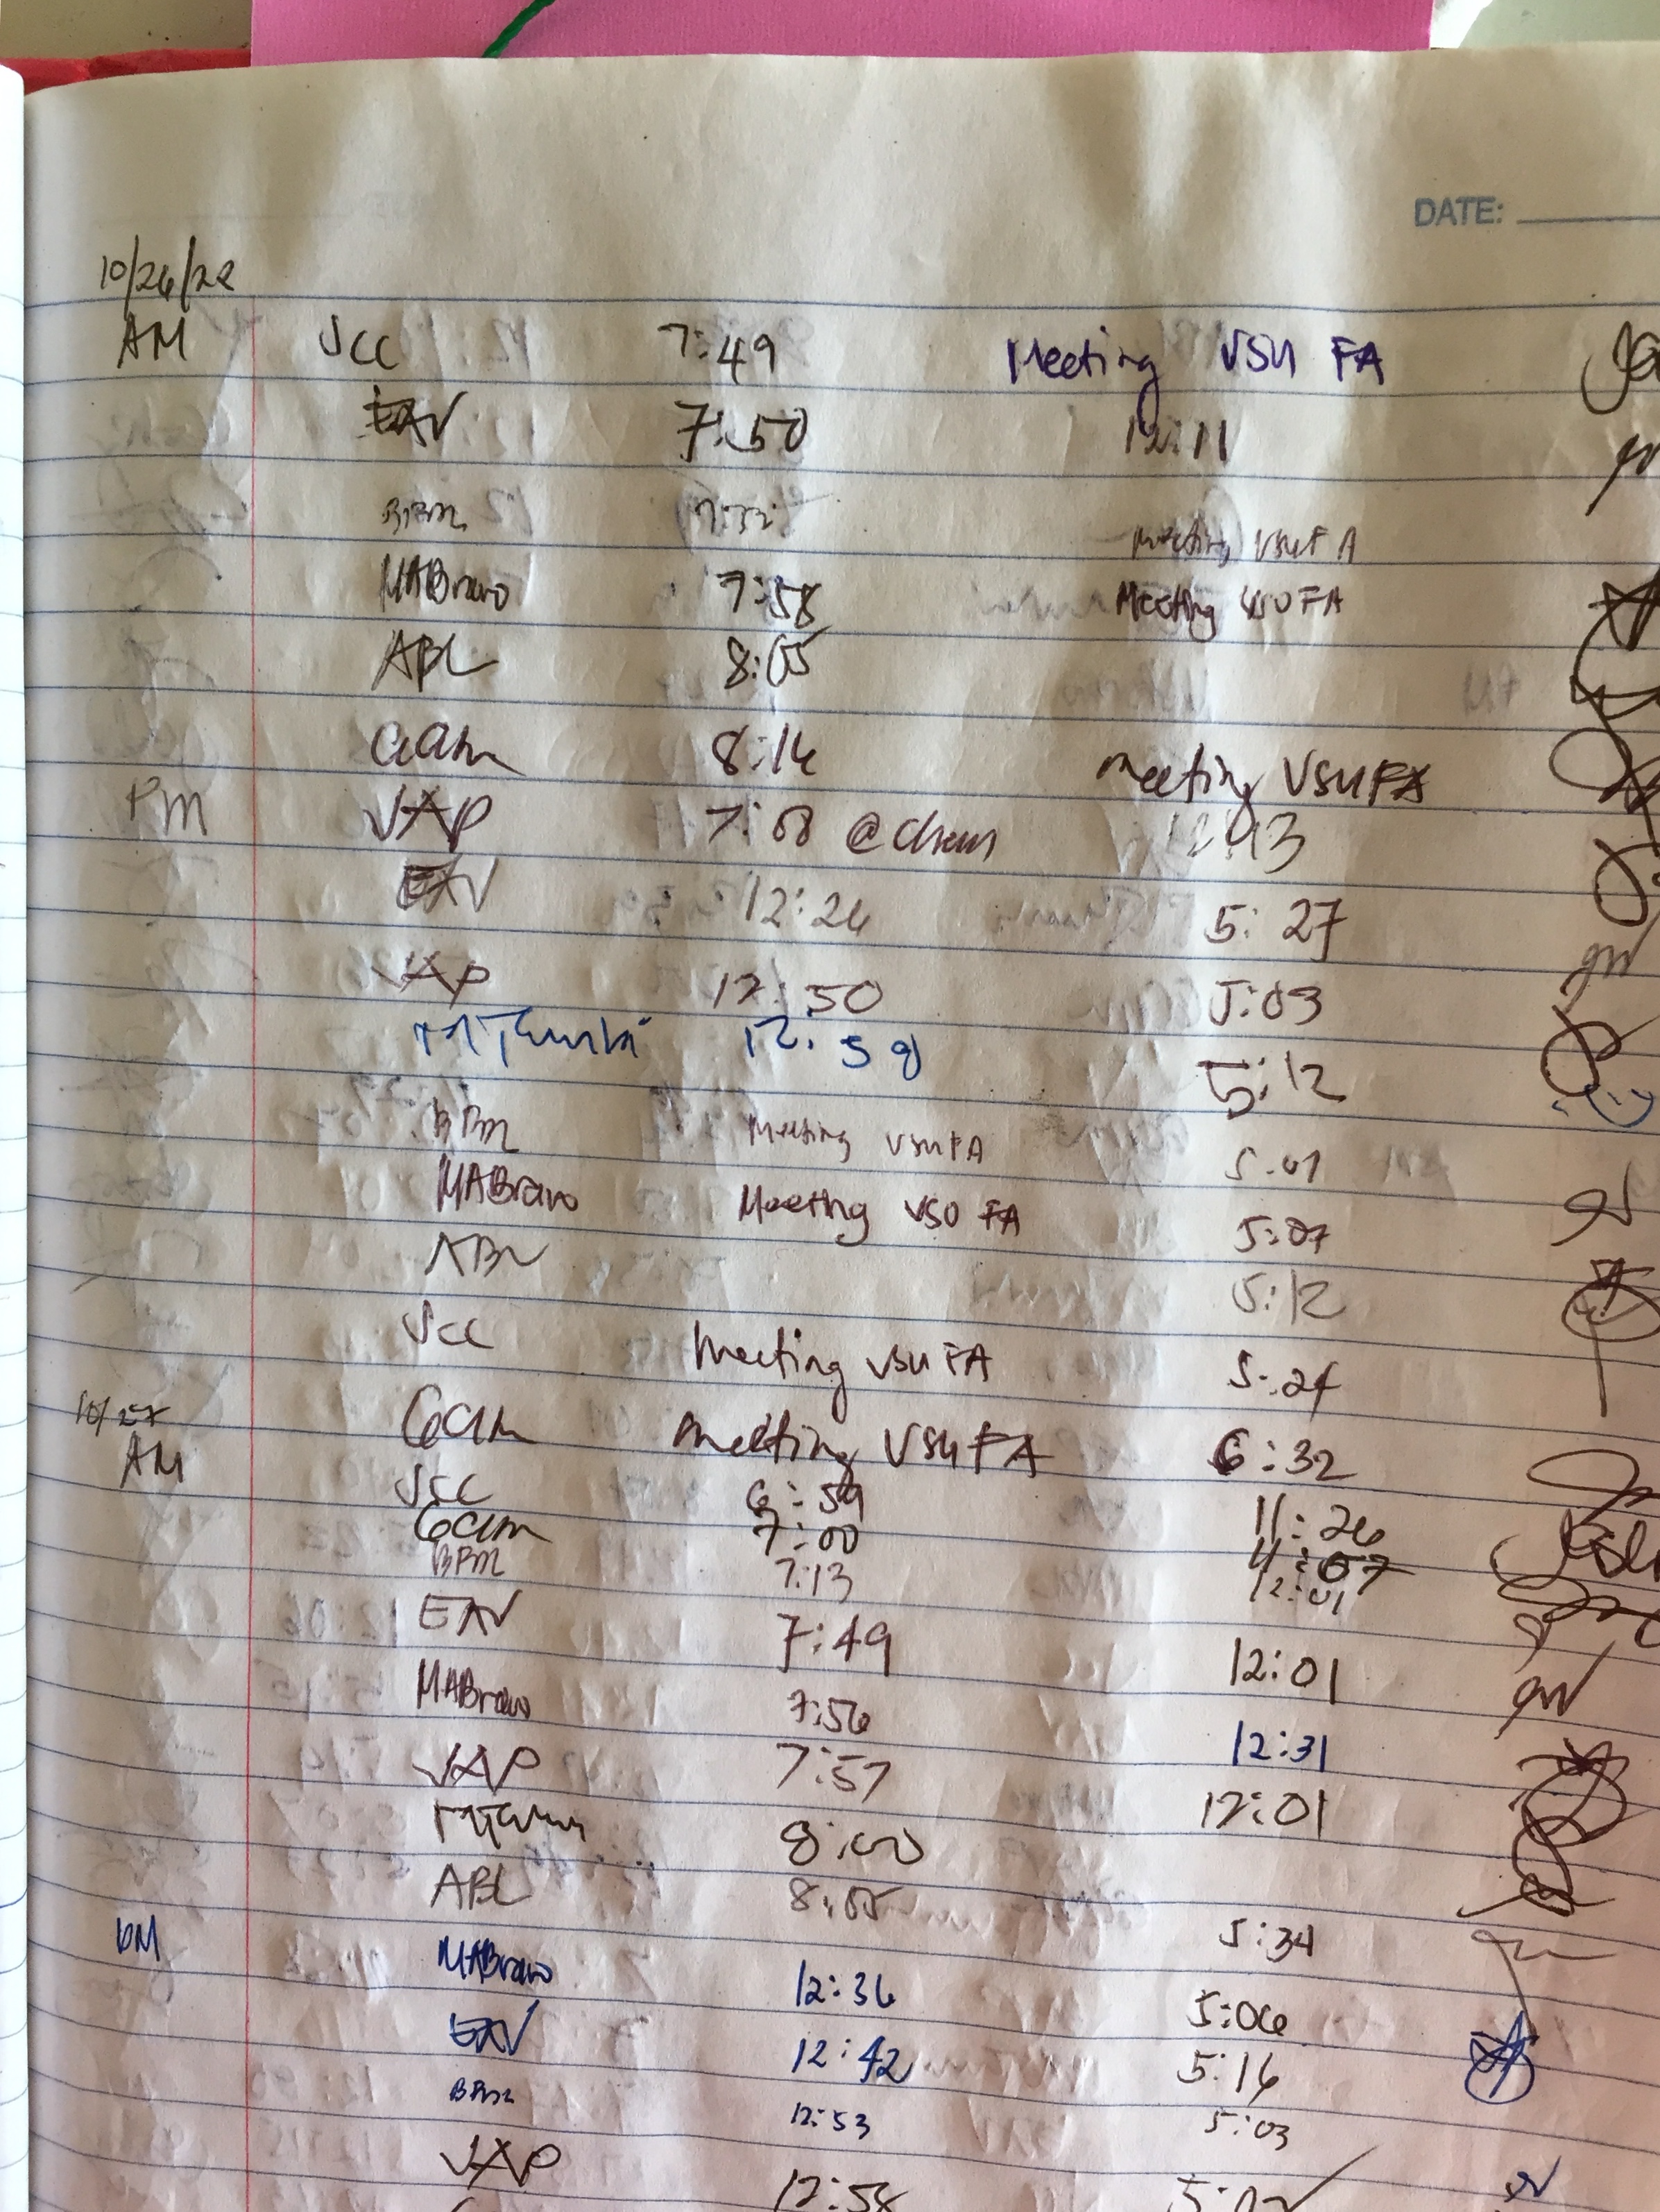 DATE:
10/26/22
AM JCC 7:49 Meeting VSU FA
EAV 7:50 12:11
BPM Meeting VSUFA
MABravo 7:58 Meeting VSU FA
ABL 8:05
GGAm 8:16 Meeting VSUFA
PM VAP 7:58 @Chem 12:13
EAV 12:26 5:27
VAP 12:50 5:03
12:59 5:12
BPM Meeting VSUFA 5:01
MABravo Meeting VSU FA 5:07
ABL 5:12
JCC Meeting VSU FA 5:24
10/27 Gam Meeting VSUFA 6:32
AM JCC 6:59 11:26
Gam 7:00 4:07
BPM 7:13 12:01
EAV 7:49 12:01
MABravo 7:56 12:31
VAP 7:57 12:01
8:00
ABL 8:05 5:34
PM MABravo 12:36 5:06
EAV 12:42 5:16
BPM 12:53 5:03
VAP 12:58